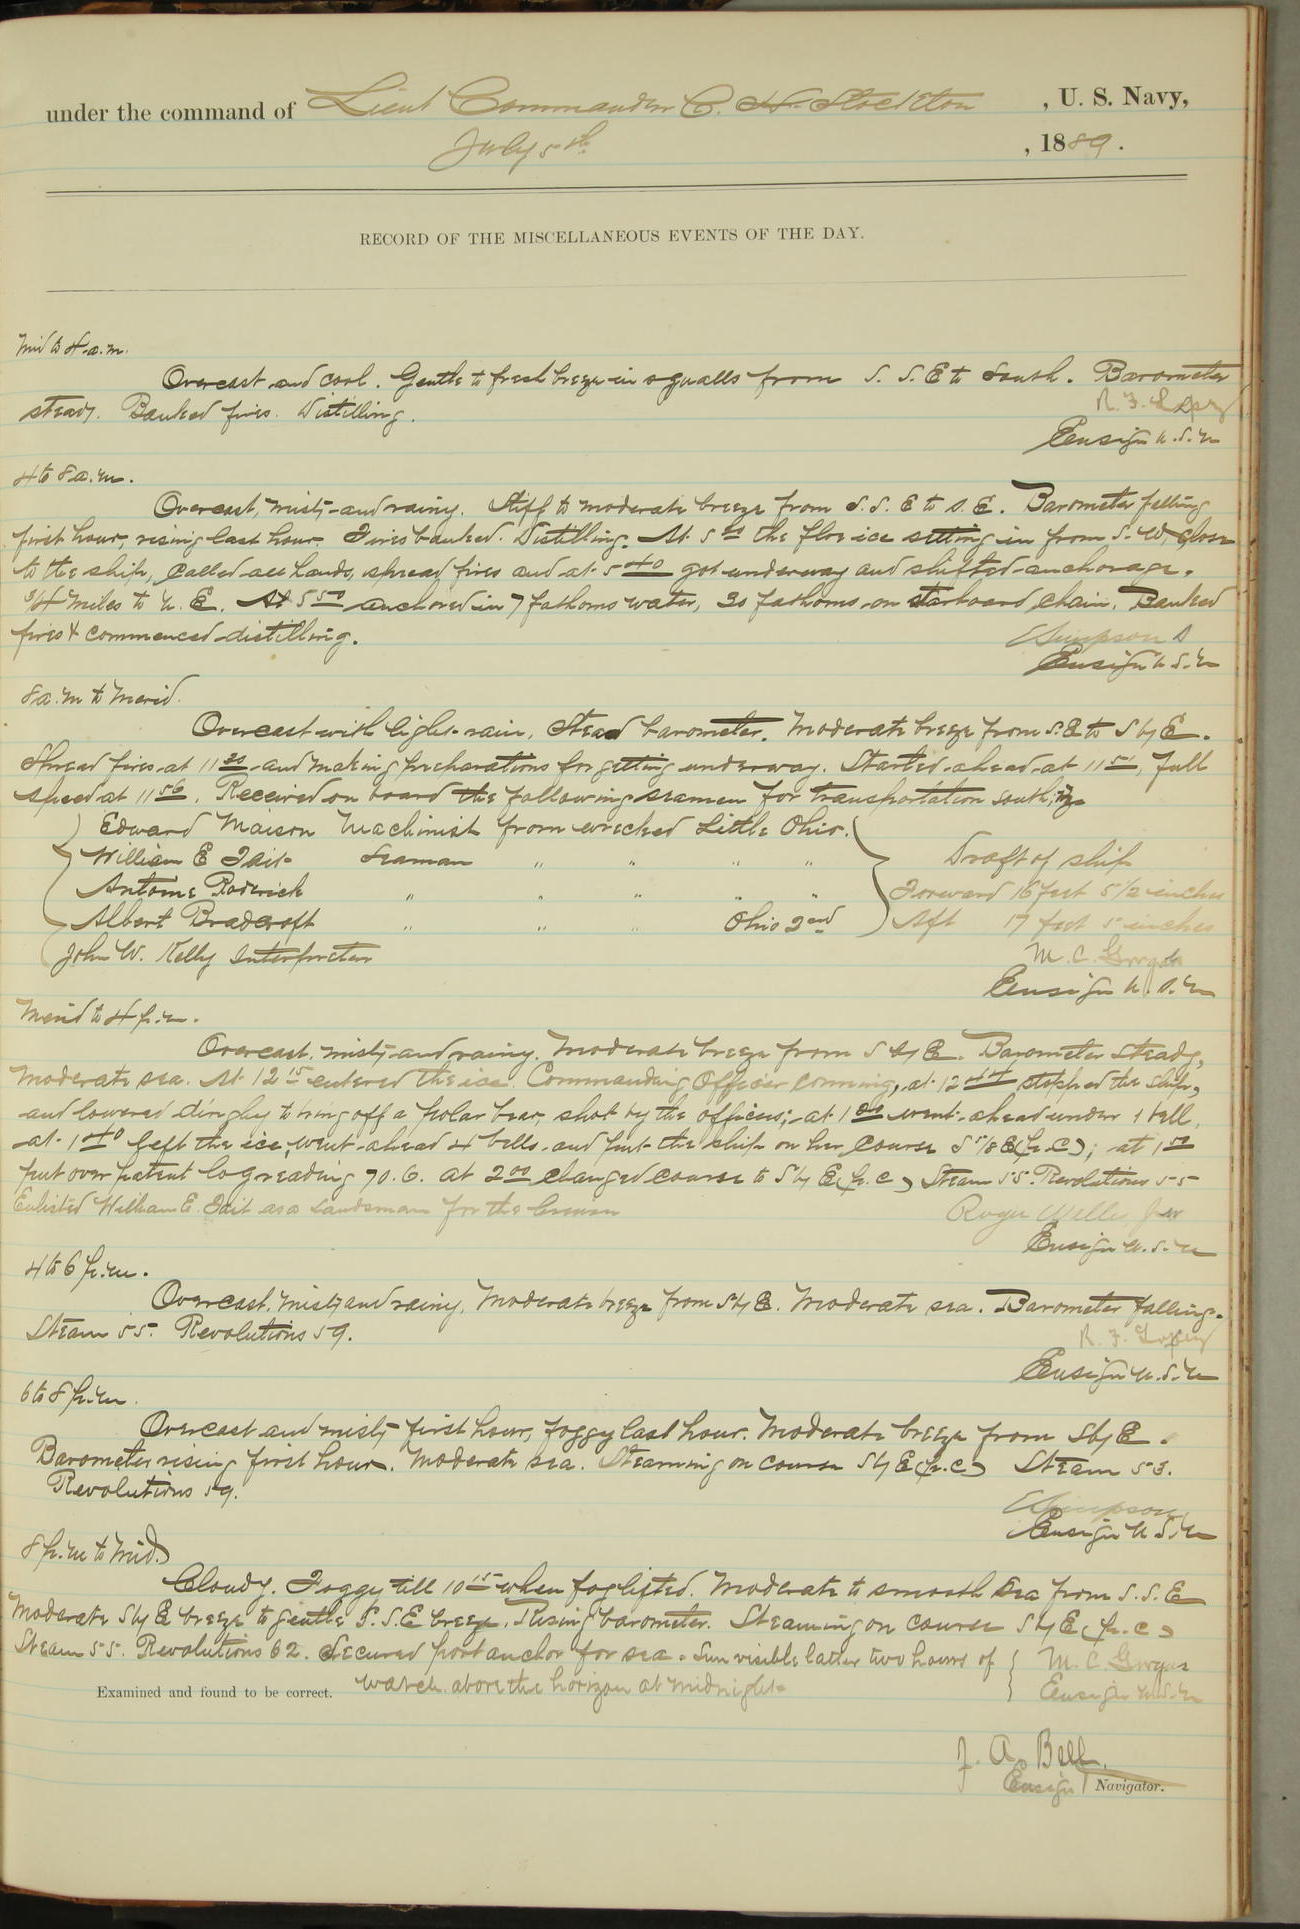 under the command of Lieut Commander C. H. Stockton , U. S. Navy,
July 5th , 1889.
RECORD OF THE MISCELLANEOUS EVENTS OF THE DAY.
Mid to 4 a.m.
Overcast and cool. Gentle to fresh breeze in squalls from S. S. E to South. Barometer
steady. Banked fires. Distilling.
R. F. Lopez
Ensign U.S.N
4 to 8 a.m.
Overcast, misty and rainy. Stiff to moderate breeze from S. S. E to S. E. Barometer falling
first hour, rising last hour. Fires banked. Distilling. At 5 the floe ice setting in from S. W, close
to the ship, called all hands, spread fires and at 5 40 got underway and shifted anchorage.
3/4 miles to N. E. At 5 50 anchored in 7 fathoms water, 30 fathoms on starboard chain. Banked
fires & commenced distilling.
E Simpson
Ensign U.S.N
8 a.m to Merid.
Overcast with light rain, Stead barometer. Moderate breeze from S.E to S by E.
Spread fires at 11 30 and making preparations for getting underway. Started ahead at 11 51, full
speed at 11 56. Received on board the following seamen for transportation south;
Edward Maison Machinist from wrecked Little Ohio.
William E Tait Seaman " " " " Draft of ship
Antone Roderick " " " " " Forward 16 feet 5 1/2 inches
Albert Bradcroft " " " Ohio 2nd Aft 17 feet 5 inches
John W. Kelly Interpreter
M. C. Gorgas
Ensign U.S.N
Merid to 4 p.m.
Overcast, misty and rainy. Moderate breeze from S by E. Barometer steady,
moderate sea. At 12 15 entered the ice. Commanding Officer conning, at 12 44 stopped the ship,
and lowered dinghy to bring off a polar bear, shot by the officers; at 1 00 went ahead under 1 bell,
at 1 40 left the ice, went ahead 4 bells and put the ship on her course S 5/8 E (p.c); at 1 50
put over patent log reading 70.6. at 2 00 changed course to S by E (p.c) Steam 55. Revolutions 55
Enlisted William E. Tait as a Landsman for the cruise
Roger Welles, Jr
Ensign U.S.N
4 to 6 p.m.
Overcast, misty and rainy, Moderate breeze from S by E. Moderate sea. Barometer falling.
Steam 55. Revolutions 59.
R. F. Lopez
Ensign U.S.N
6 to 8 p.m.
Overcast and misty first hour, foggy last hour. Moderate breeze from S by E.
Barometer rising first hour. Moderate sea. Steaming on course S by E (p.c) Steam 53.
Revolutions 59.
E Simpson
Ensign U.S.N
8 p.m to Mid.
Cloudy. Foggy till 10 15 when fog lifted. Moderate to smooth sea from S. S. E
Moderate S by E breeze to gentle S. S. E breeze. Rising barometer. Steaming on course S by E (p.c)
Steam 55. Revolutions 62. Secured port anchor for sea. Sun visible latter two hours of
watch above the horizon at midnight
M. C. Gorgas
Ensign U.S.N
Examined and found to be correct.
J. A. Bell
Ensign Navigator.